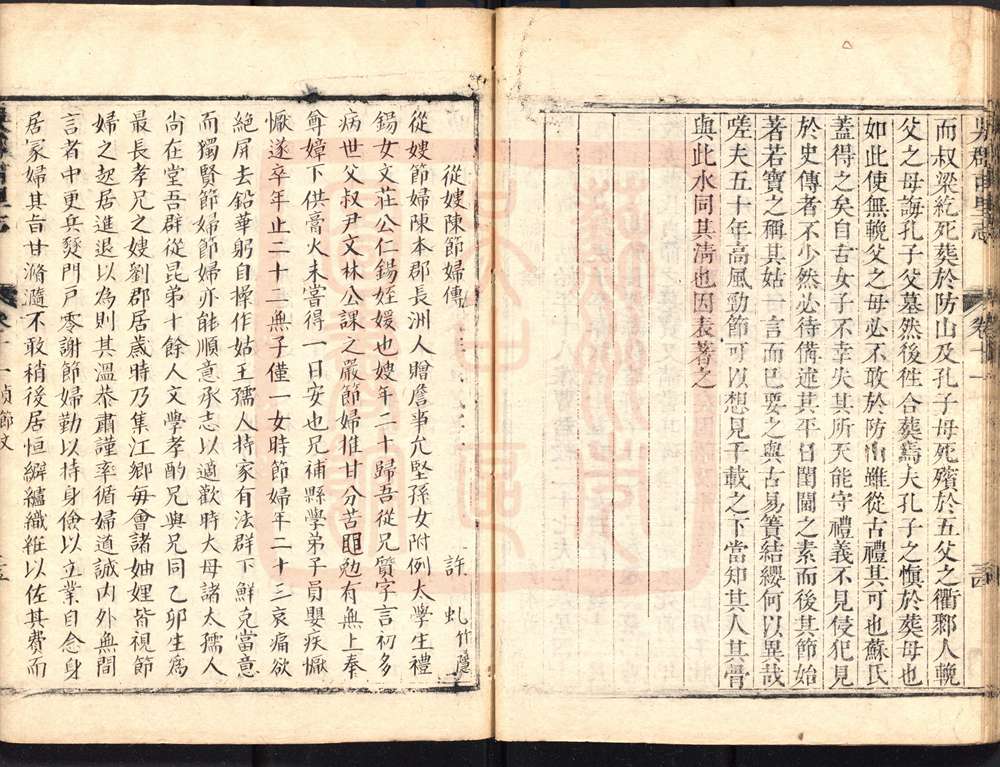 而叔梁紇死葬於防山及孔子母死殯於五父之衢鄹人輓
父之母誨孔子父墓然後徃合葬焉夫孔子之慎於葬母也
如此使無輓父之母必不敢於防山雖從古禮其可也蘇氏
蓋得之矣自古女子不幸失其所天能守禮義不見侵犯見
於史傳者不少然必待備述其平日閨閫之素而後其節始
著若寶之稱其姑一言而已要之與古易簀結纓何以異哉
嗟夫五十年高風勁節可以想見千載之下當知其人其骨
與此水同其清也因表著之
卷十一
從嫂陳節婦傳
許虬竹隱
從嫂節婦陳本郡長洲人贈詹事允堅孫女附例太學生禮
錫女文莊公仁錫姪媛也嫂年二十歸吾從兄質字言初多
病世父叔尹文林公課之嚴節婦推甘分苦黽勉有無上奉
尊嫜下供膏火未嘗得一日安也兄補縣學弟子員嬰疾懨
懨遂卒年止二十二無子僅一女時節婦年二十三哀痛欲
絕屏去鉛華躬自操作姑王孺人持家有法群下鮮克當意
而獨賢節婦節婦亦能順意承志以適歡時大母諸太孺人
尙在堂吾群從昆弟十餘人文學孝酌兄與兄同乙卯生爲
最長孝兄之嫂劉郡居歲時乃集江鄉每會諸妯娌皆視節
婦之起居進退以為則其溫恭肅謹率循婦道誠內外無間
言者中更兵燹門戶零謝節婦勤以持身儉以立業自念身
居冢婦其旨甘滫瀡不敢稍後居恒纚織絍以佐其費而
卷十一貞節文